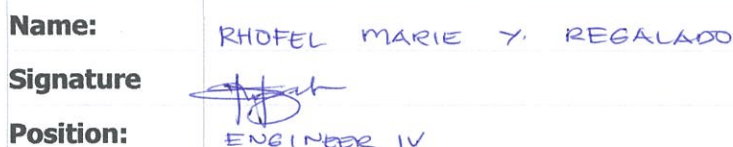 Name: RHOFEL MARIE Y. REGALADO
Signature
Position: ENGINEER IV